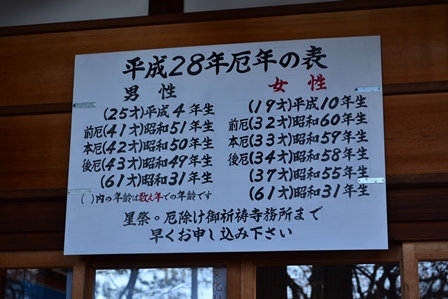 平成28年厄年の表
男性
(25才)平成4年生
前厄(41才)昭和51年生
本厄(42才)昭和50年生
後厄(43才)昭和49年生
(61才)昭和31年生
女性
(19才)平成10年生
前厄(32才)昭和60年生
本厄(33才)昭和59年生
後厄(34才)昭和58年生
(37才)昭和55年生
(61才)昭和31年生
( )内の年齢は数え年での年齢です
星祭。厄除け御祈祷寺務所まで
早くお申し込み下さい